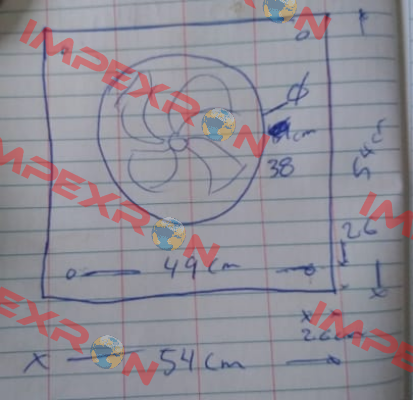 IMPEXRON
IMPEXRON
IMPEXRON
IMPEXRON
IMPEXRON
ϕ
cm
38
2.6
49 cm
x
2.6 cm
x 54 cm